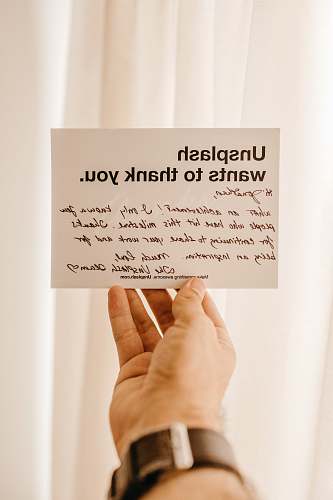 Unsplash
wants to thank you.
Hi Jonathan,
What an achievement! I only know a few
people who have hit this milestone. Thanks
for continuing to share your work and for
being an inspiration.
Much love,
The Unsplash Team
Make something awesome. Unsplash.com